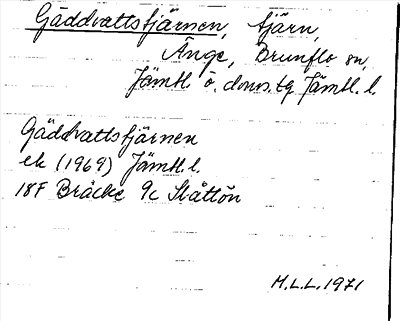 Gäddvattstjärnen, tjärn,
Änge, Brunflo sn,
Jämtl. ö. doms.tg Jämtl. l.
Gäddvattstjärnen
ek (1969) Jämtl. l.
18F Bräcke 9c Slåttön
M.L.L. 1971